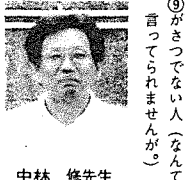 ⑨がさつでない人（なんて
言ってられませんが。）
中林 修先生